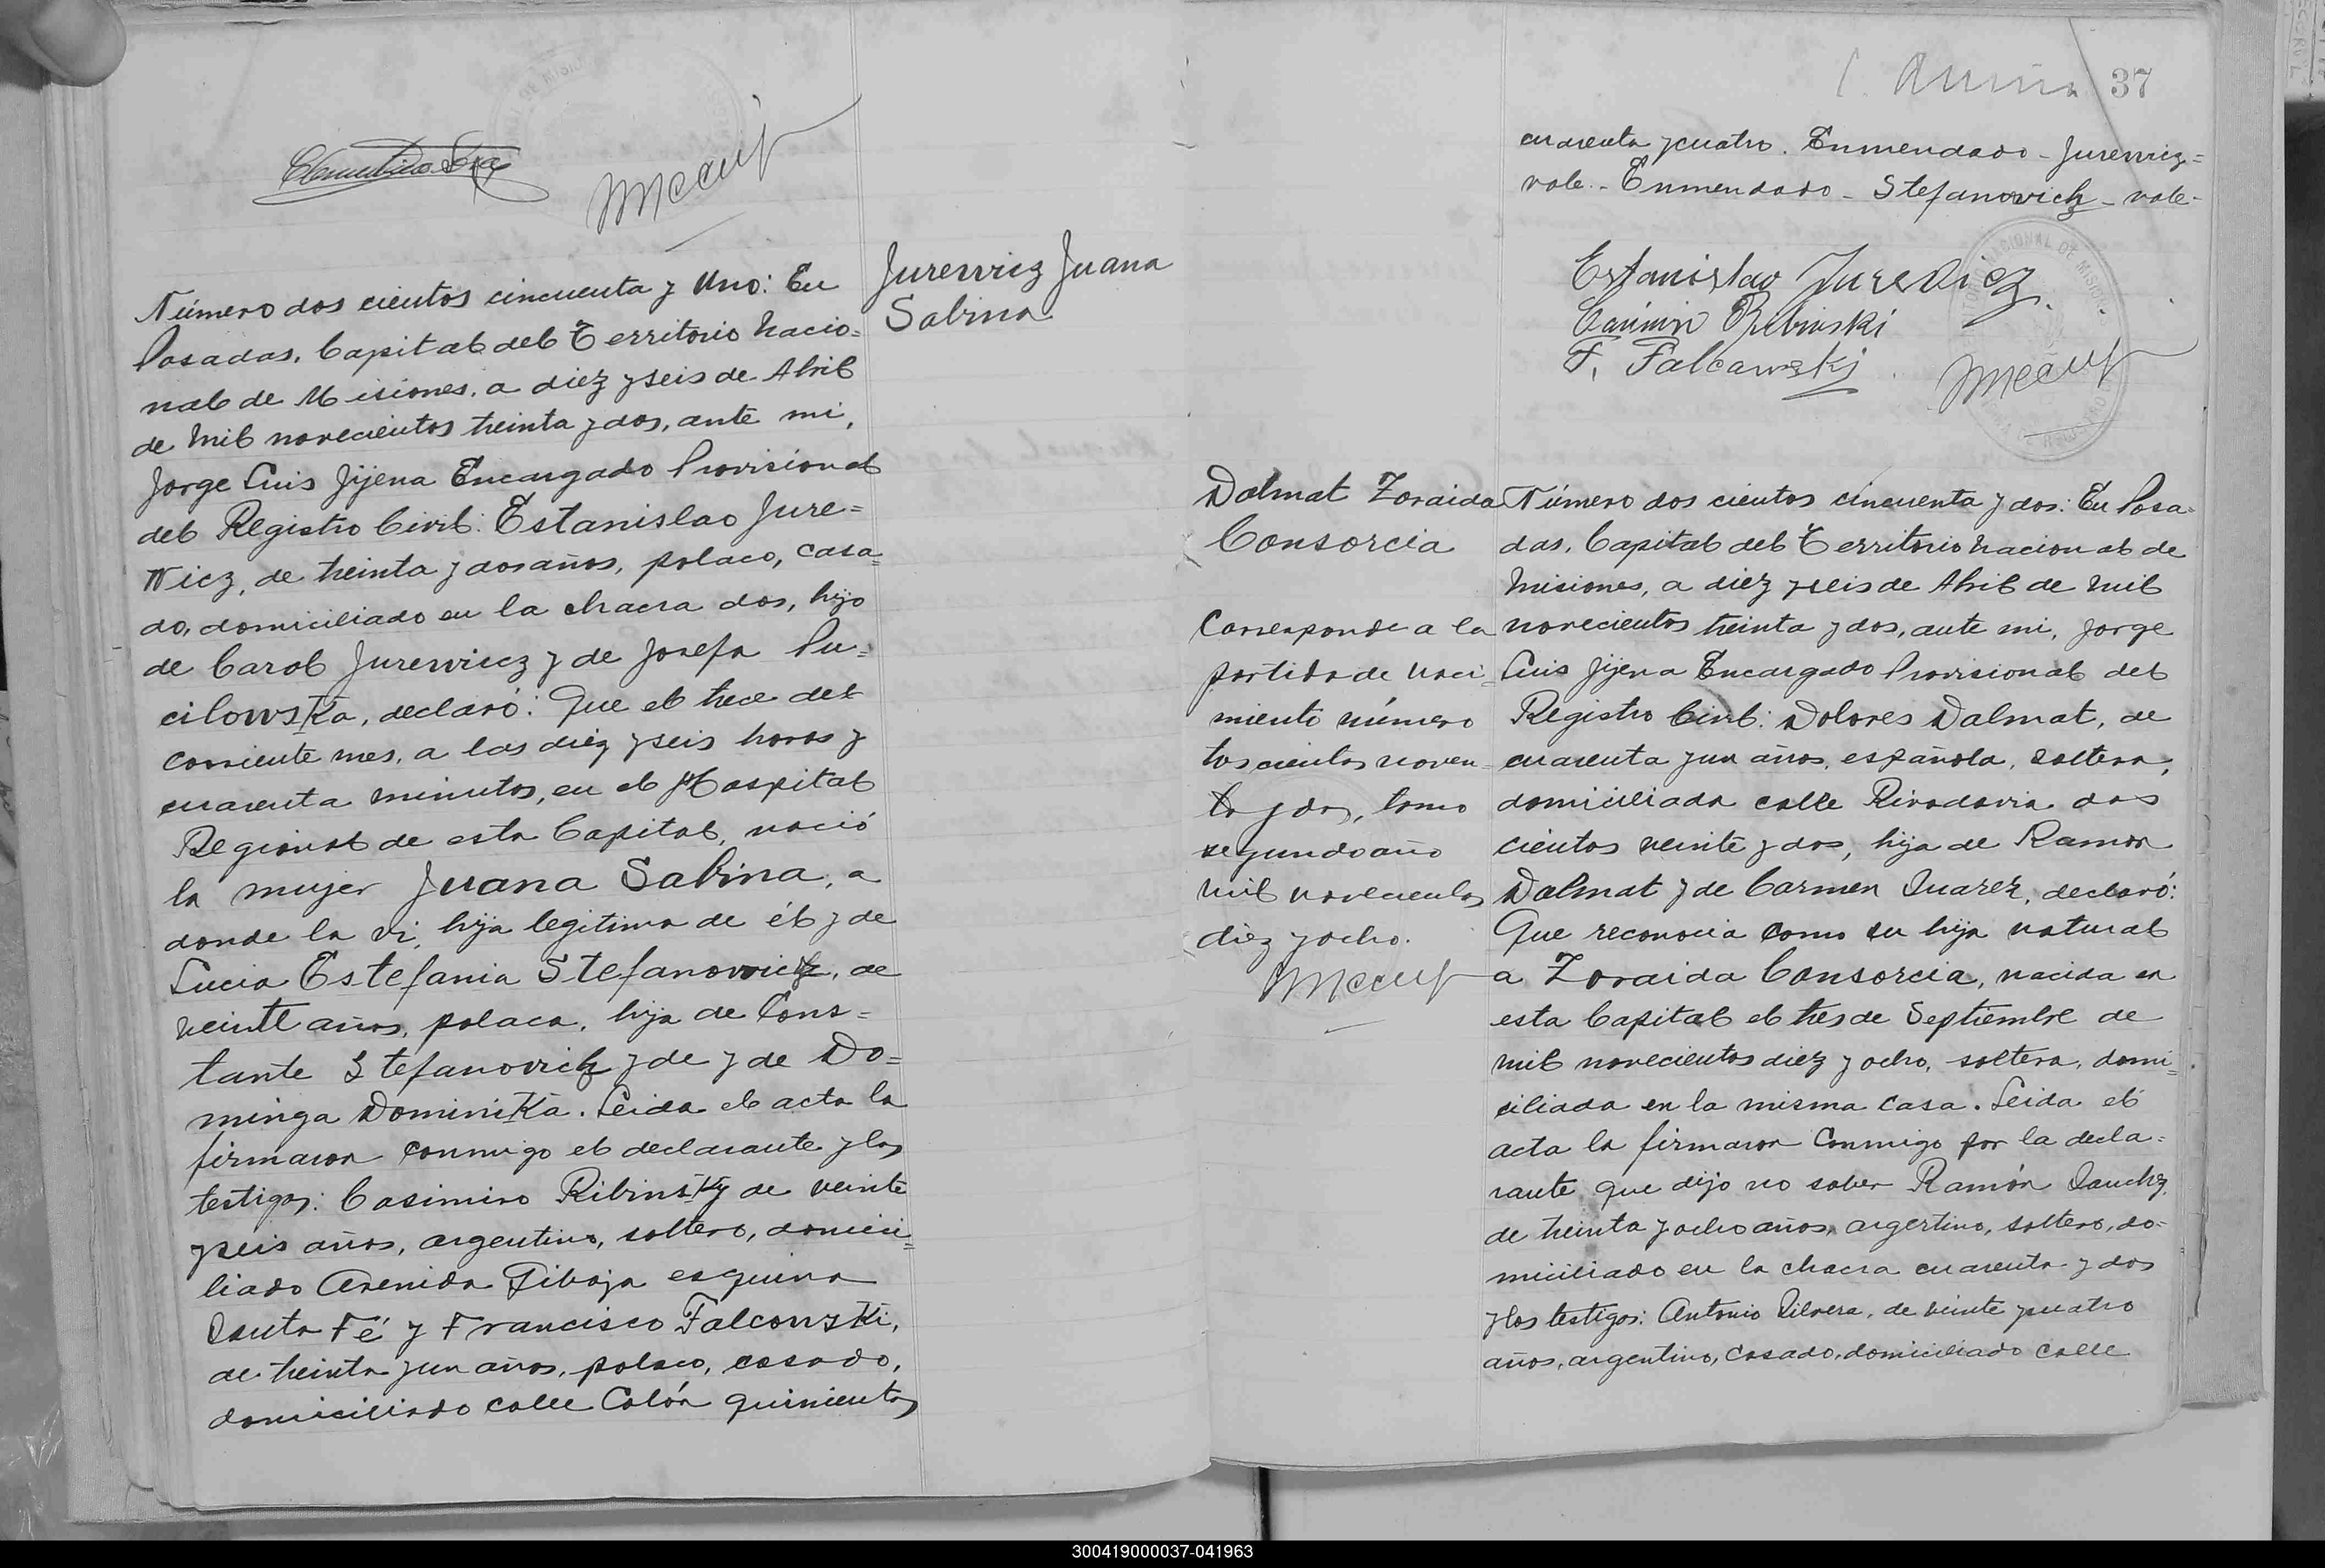 Jurewicz Juana
Sabina
Número dos cientos cincuenta y uno: En
Posadas, Capital del Territorio Nacio=
nal de Misiones, a diez y seis de Abril
de mil novecientos treinta y dos, ante mi,
Jorge Luis Jijena Encargado Provisional
del Registro Civil: Estanislao Jure=
wicz, de treinta y dos años, polaco, casa=
do, domiciliado en la chacra dos, hijo
de Carol Jurewicz y de Josefa Pu=
cilowska, declaró: Que el trece del
corriente mes, a las diez y seis horas y
cuarenta minutos, en el Hospital
Regional de esta Capital, nació
la mujer Juana Sabina, a
donde la vi, hija legitima de él y de
Lucia Estefania Stefanowich, de
veinte años, polaca, hija de Cons=
tante Stefanovich y de y de Do=
minga Dominika. Leida el acta la
firmaron conmigo el declarante y los
testigos: Casimiro Ribinsky de veinte
y seis años, argentino, soltero, domici=
liado Avenida Tibaja esquina
Santa Fé y Francisco Falconski,
de treinta y un años, polaco, casado,
domiciliado calle Colón quinientos
37
cuarenta y cuatro. Enmendado - Jurewicz=
vale - Enmendado - Stefanowich - vale -
Estanislao Jurevicz
Casimiro Ribinski
F. Falcawski
Dalmat Zoraida
Consorcia
Corresponde a la
partida de naci=
miento número
dos cientos noven=
ta y dos, tomo
segundo año
mil novecientos
diez y ocho.
Número dos cientos cincuenta y dos: En Posa=
das, Capital del Territorio Nacional de
Misiones, a diez y seis de Abril de mil
novecientos treinta y dos, ante mi, Jorge
Luis Jijena Encargado Provisional del
Registro Civil: Dolores Dalmat, de
cuarenta y un años, española, soltera,
domiciliada calle Rivadavia dos
cientos veinte y dos, hija de Ramón
Dalmat y de Carmen Suarez, declaró:
Que reconocia como su hija natural
a Zoraida Consorcia, nacida en
esta Capital el tres de Septiembre de
mil novecientos diez y ocho, soltera, domi=
ciliada en la misma casa. Leida el
acta la firmaron conmigo por la decla=
rante que dijo no saber Ramón Sanchez,
de treinta y ocho años, argentino, soltero, do=
miciliado en la chacra cuarenta y dos
y los testigos: Antonio Silvera, de veinte y cuatro
años, argentino, casado, domiciliado calle
300419000037-041963